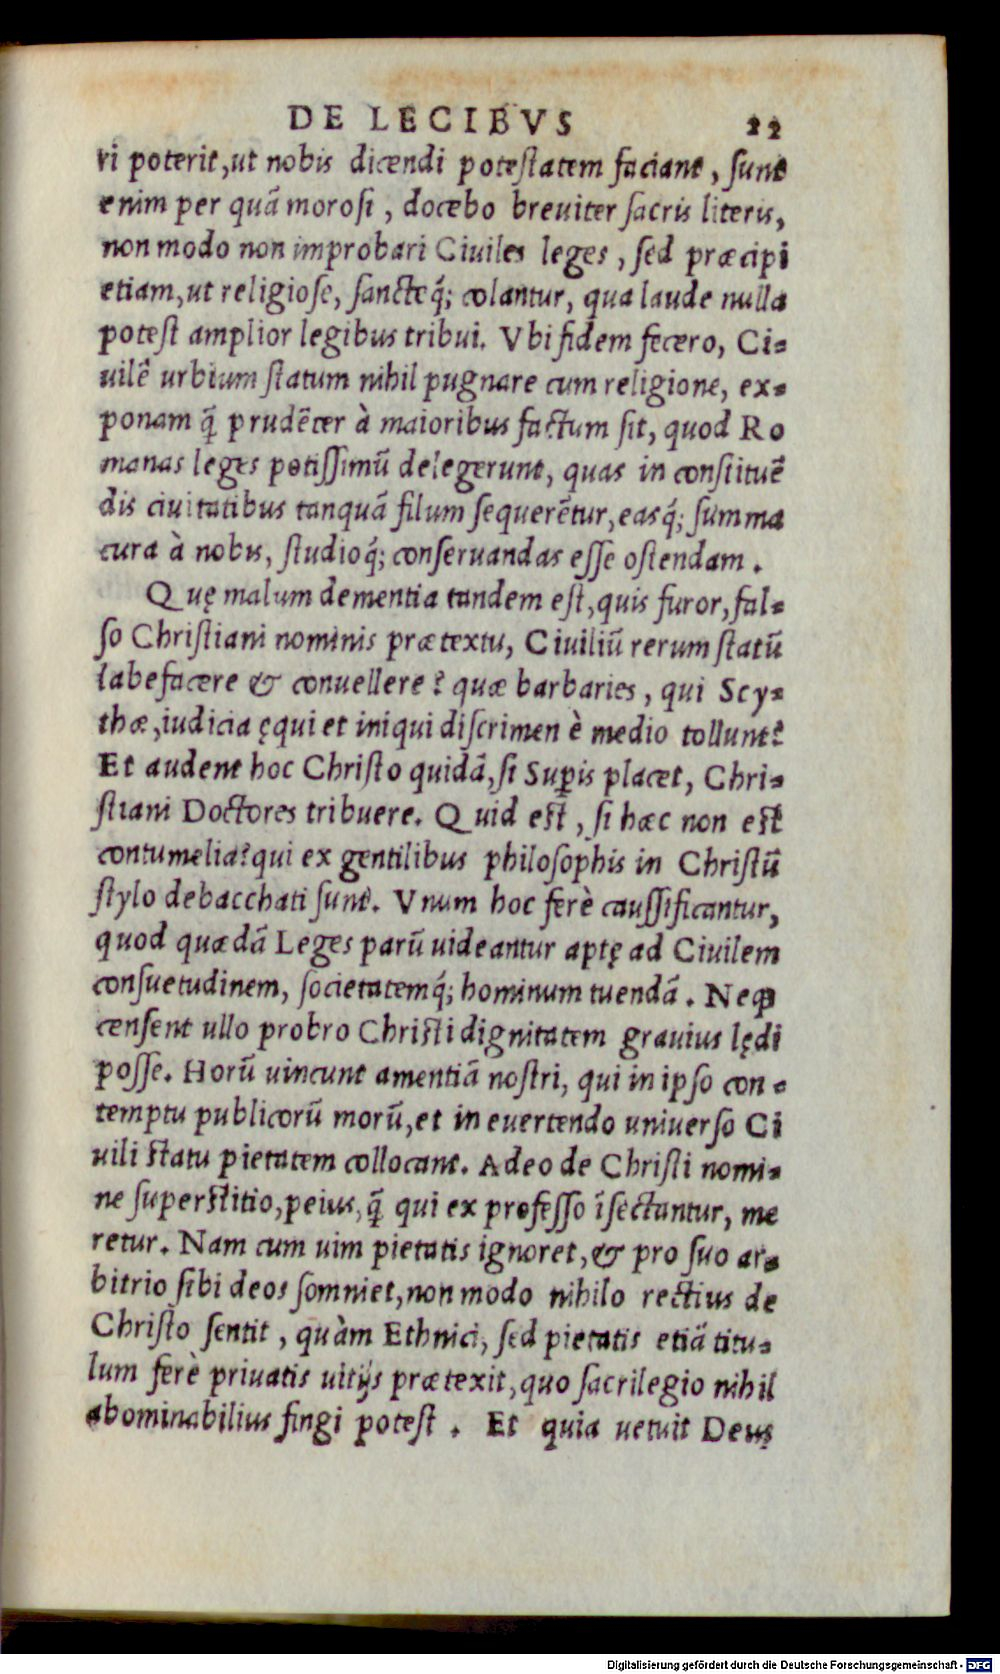 DE LECIBVS 22
ri poterit, ut nobis dicendi potestatem faciant, sunt
enim per quã morosi, docebo breuiter sacris literis,
non modo non improbari Ciuiles leges, sed præcipi
etiam, ut religiose, sancteq́; colantur, qua laude nulla
potest amplior legibus tribui. Vbi fidem fecero, Ci-
uilẽ urbium statum nihil pugnare cum religione, ex-
ponam q̃ prudẽter à maioribus factum sit, quod Ro
manas leges potissimũ delegerunt, quas in constituẽ
dis ciuitatibus tanquã filum sequerẽtur, easq́; summa
cura à nobis, studioq́; conseruandas esse ostendam.
Quę malum dementia tandem est, quis furor, fal-
so Christiani nominis prætextu, Ciuiliũ rerum statũ
labefacere & conuellere? quæ barbaries, qui Scy-
thæ, iudicia ęqui et iniqui discrimen è medio tollunt?
Et audent hoc Christo quidã, si Suꝑis placet, Chri-
stiani Doctores tribuere. Quid est, si hæc non est
contumelia? qui ex gentilibus philosophis in Christũ
stylo debacchati sunt. Vnum hoc ferè caussificantur,
quod quædã Leges parũ uideantur aptę ad Ciuilem
consuetudinem, societatemq́; hominum tuendã. Neqꝫ
censent ullo probro Christi dignitatem grauius lędi
posse. Horũ uincunt amentiã nostri, qui in ipso con-
temptu publicorũ morũ, et in euertendo uniuerso Ci
uili statu pietatem collocant. Adeo de Christi nomi-
ne superstitio, peius, q̃ qui ex professo ĩsectantur, me
retur. Nam cum uim pietatis ignoret, & pro suo ar-
bitrio sibi deos somniet, non modo nihilo rectius de
Christo sentit, quàm Ethnici, sed pietatis etiã titu-
lum ferè priuatis uitijs prætexit, quo sacrilegio nihil
abominabilius fingi potest. Et quia uetuit Deus
Digitalisierung gefördert durch die Deutsche Forschungsgemeinschaft - DFG